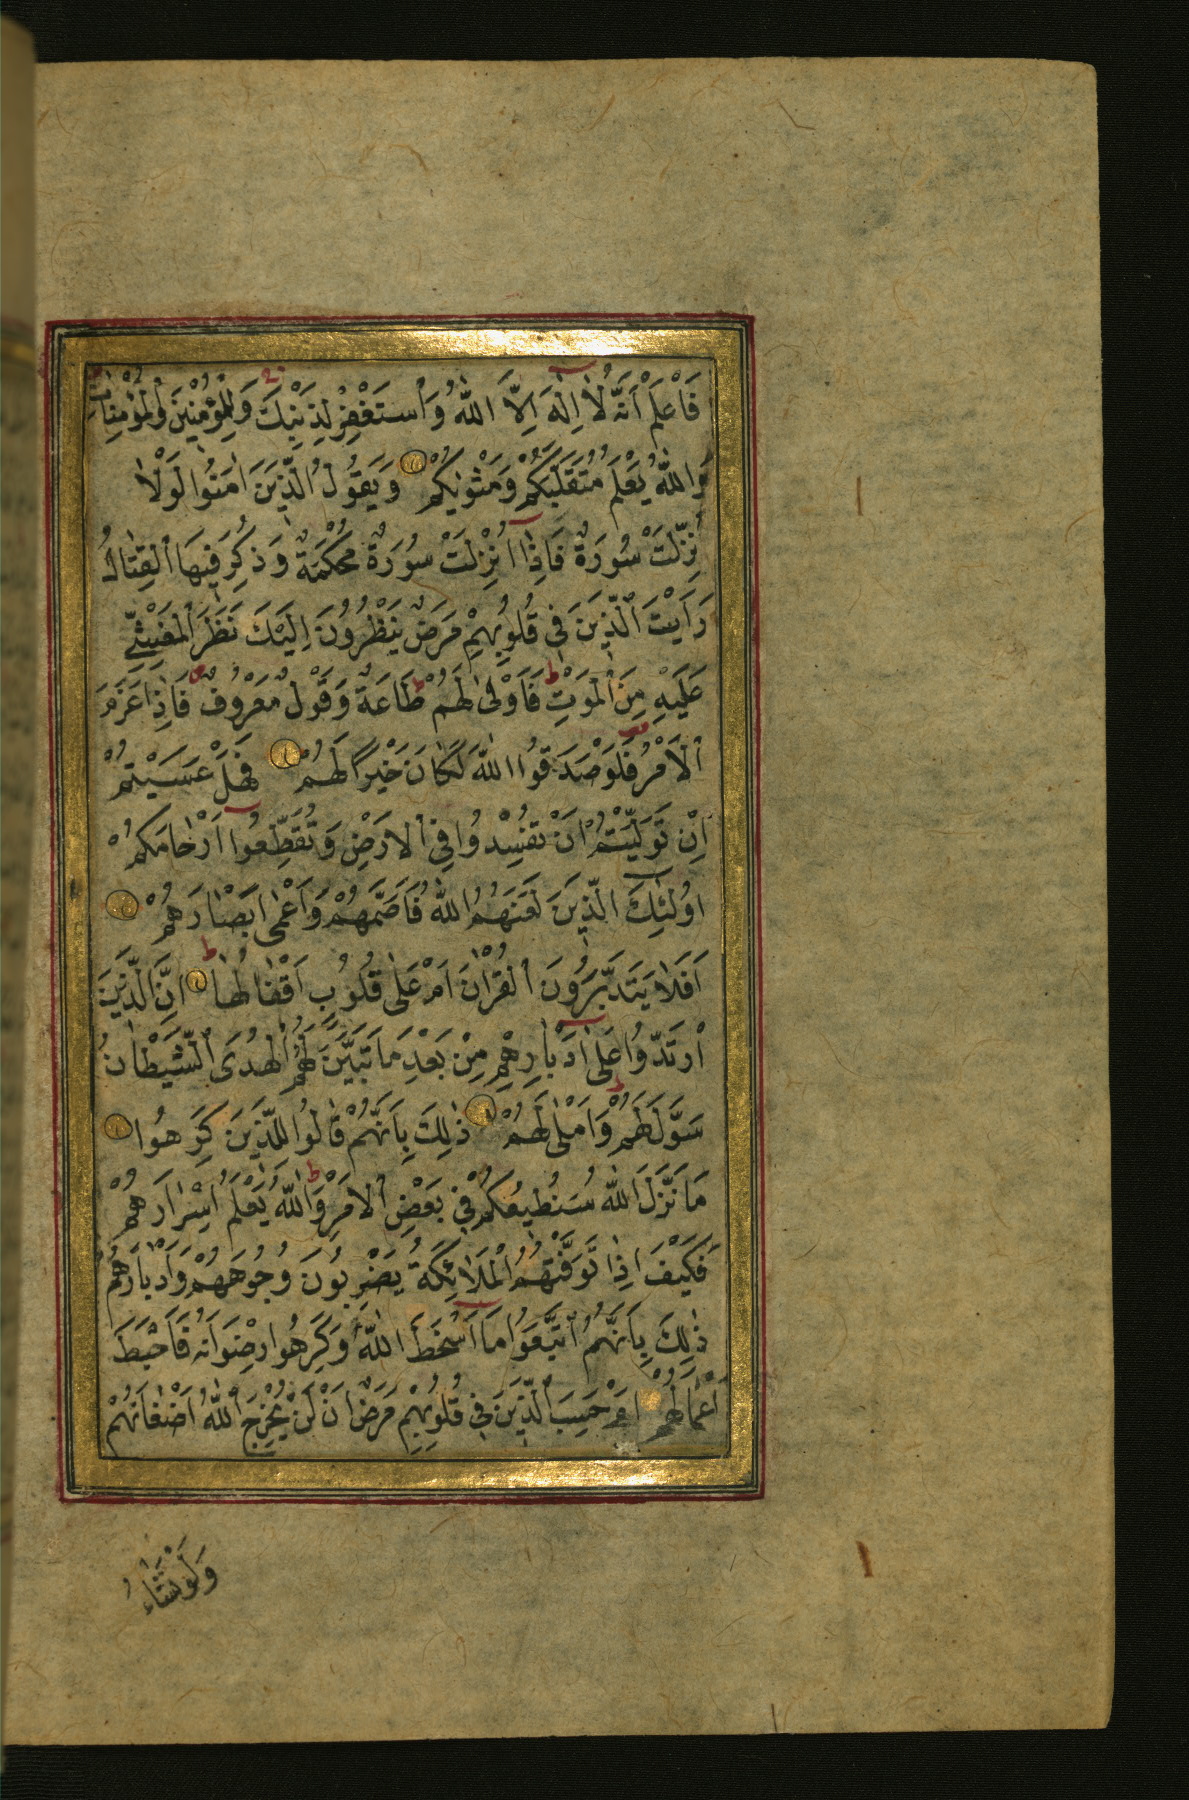 فَاعْلَمْ اَنَّهُ لَٓا اِلٰهَ اِلَّا اللّٰهُ وَاسْتَغْفِرْ لِذَنْبِكَ وَلِلْمُؤْمِنٖينَ وَالْمُؤْمِنَاتِ
وَاللّٰهُ يَعْلَمُ مُتَقَلَّبَكُمْ وَمَثْوٰيكُمْ وَيَقُولُ الَّذٖينَ اٰمَنُوا لَوْلَا
نُزِّلَتْ سُورَةٌ فَاِذَٓا اُنْزِلَتْ سُورَةٌ مُحْكَمَةٌ وَذُكِرَ فٖيهَا الْقِتَالُ
رَاَيْتَ الَّذٖينَ فٖى قُلُوبِهِمْ مَرَضٌ يَنْظُرُونَ اِلَيْكَ نَظَرَ الْمَغْشِىِّ
عَلَيْهِ مِنَ الْمَوْتِ ط فَاَوْلٰى لَهُمْ ط طَاعَةٌ وَقَوْلٌ مَعْرُوفٌ فَاِذَا عَزَمَ
الْاَمْرُ فَلَوْ صَدَقُوا اللّٰهَ لَكَانَ خَيْرًا لَهُمْ فَهَلْ عَسَيْتُمْ
اِنْ تَوَلَّيْتُمْ اَنْ تُفْسِدُوا فِى الْاَرْضِ وَتُقَطِّعُٓوا اَرْحَامَكُمْ
اُولٰٓئِكَ الَّذٖينَ لَعَنَهُمُ اللّٰهُ فَاَصَمَّهُمْ وَاَعْمٰى اَبْصَارَهُمْ
اَفَلَا يَتَدَبَّرُونَ الْقُرْاٰنَ اَمْ عَلٰى قُلُوبٍ اَقْفَالُهَا ط اِنَّ الَّذٖينَ
ارْتَدُّوا عَلٰٓى اَدْبَارِهِمْ مِنْ بَعْدِ مَا تَبَيَّنَ لَهُمُ الْهُدَى الشَّيْطَانُ
سَوَّلَ لَهُمْ ط وَاَمْلٰى لَهُمْ ذٰلِكَ بِاَنَّهُمْ قَالُوا لِلَّذٖينَ كَرِهُوا
مَا نَزَّلَ اللّٰهُ سَنُطٖيعُكُمْ فٖى بَعْضِ الْاَمْرِ ط وَاللّٰهُ يَعْلَمُ اِسْرَارَهُمْ
فَكَيْفَ اِذَا تَوَفَّتْهُمُ الْمَلَائِكَةُ يَضْرِبُونَ وُجُوهَهُمْ وَاَدْبَارَهُمْ
ذٰلِكَ بِاَنَّهُمُ اتَّبَعُوا مَٓا اَسْخَطَ اللّٰهَ وَكَرِهُوا رِضْوَانَهُ فَاَحْبَطَ
اَعْمَالَهُمْ اَمْ حَسِبَ الَّذٖينَ فٖى قُلُوبِهِمْ مَرَضٌ اَنْ لَنْ يُخْرِجَ اللّٰهُ اَضْغَانَهُمْ
وَلَوْ نَشَاءُ